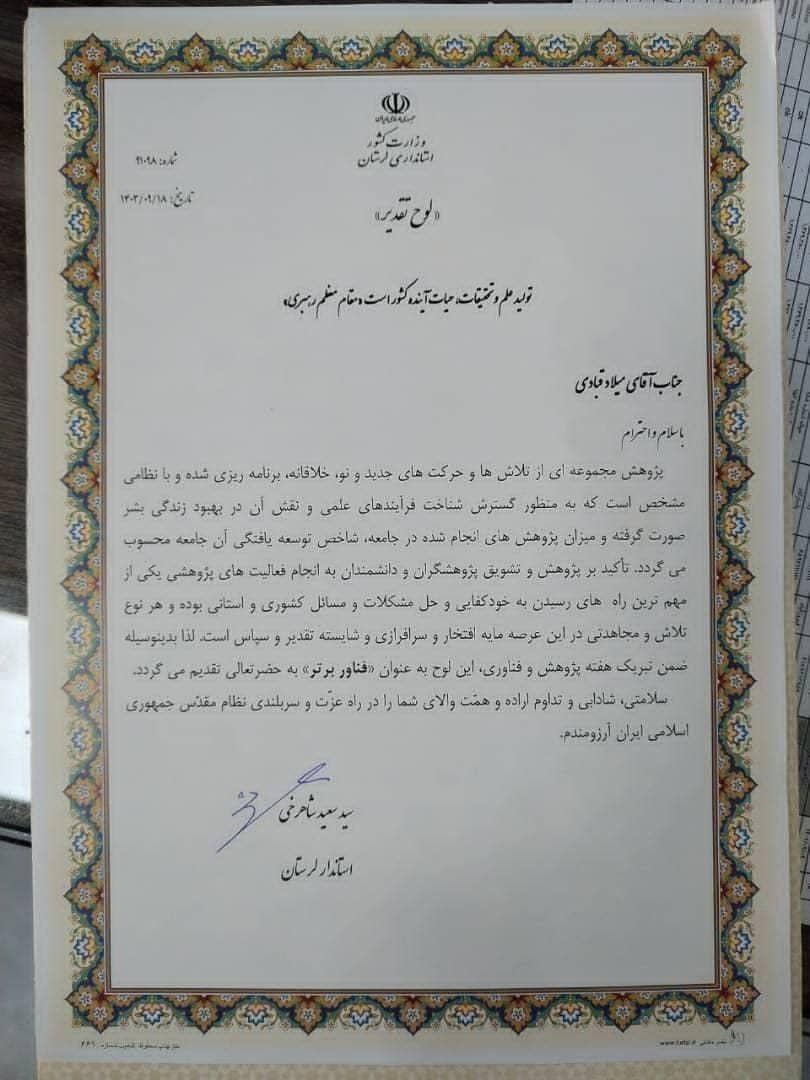 جمهوری اسلامی ایران
وزارت کشور
استانداری لرستان
شماره: ۹۱۰۹۸
تاریخ: ۱۴۰۳/۰۹/۱۸
«لوح تقدیر»
تولید علم و تحقیقات، حیات آینده کشور است «مقام معظم رهبری»
جناب آقای میلاد قبادی
با سلام و احترام
پژوهش مجموعه ای از تلاش ها و حرکت های جدید و نو، خلاقانه، برنامه ریزی شده و با نظامی
مشخص است که به منظور گسترش شناخت فرآیندهای علمی و نقش آن در بهبود زندگی بشر
صورت گرفته و میزان پژوهش های انجام شده در جامعه، شاخص توسعه یافتگی آن جامعه محسوب
می گردد. تأکید بر پژوهش و تشویق پژوهشگران و دانشمندان به انجام فعالیت های پژوهشی یکی از
مهم ترین راه های رسیدن به خودکفایی و حل مشکلات و مسائل کشوری و استانی بوده و هر نوع
تلاش و مجاهدتی در این عرصه مایه افتخار و سرافرازی و شایسته تقدیر و سپاس است. لذا بدینوسیله
ضمن تبریک هفته پژوهش و فناوری، این لوح به عنوان «فناور برتر» به حضرتعالی تقدیم می گردد.
سلامتی، شادابی و تداوم اراده و همّت والای شما را در راه عزّت و سربلندی نظام مقدّس جمهوری
اسلامی ایران آرزومندم.
سید سعید شاهرخی
استاندار لرستان